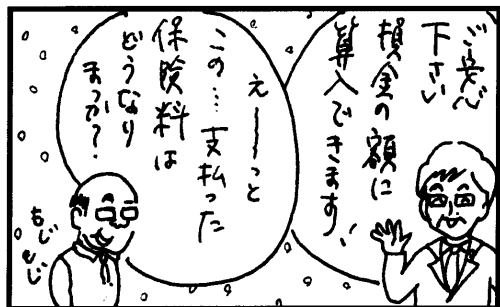 ご安心
下さい
損金の額に
算入できます、
えーーっと
この…支払った
保険料は
どうなり
まっか？
もじ
もじ